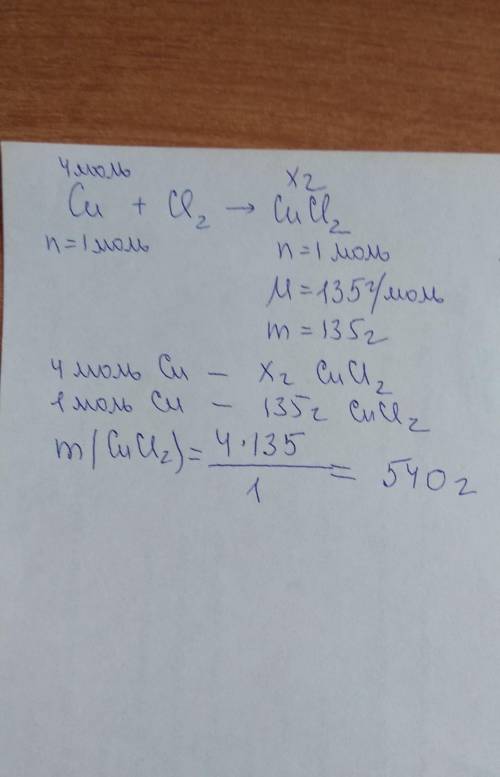 4 моль x г
Cu + Cl₂ → CuCl₂
n = 1 моль n = 1 моль
M = 135 г/моль
m = 135 г
4 моль Cu — x г CuCl₂
1 моль Cu — 135 г CuCl₂
m(CuCl₂) = 4·135 / 1 = 540 г